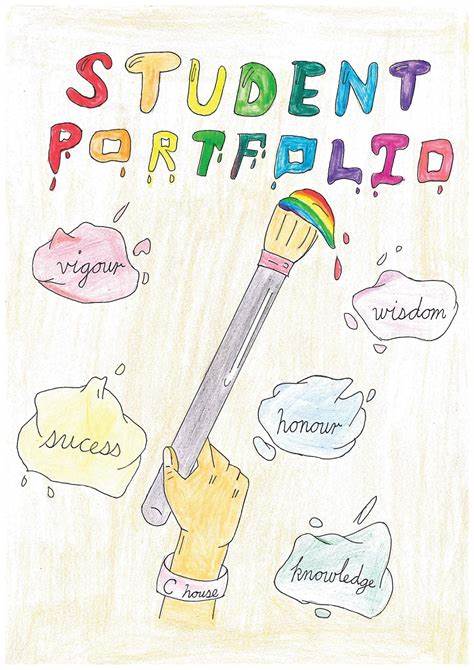 STUDENT
PORTFOLIO
vigour
wisdom
sucess
honour
knowledge
C house